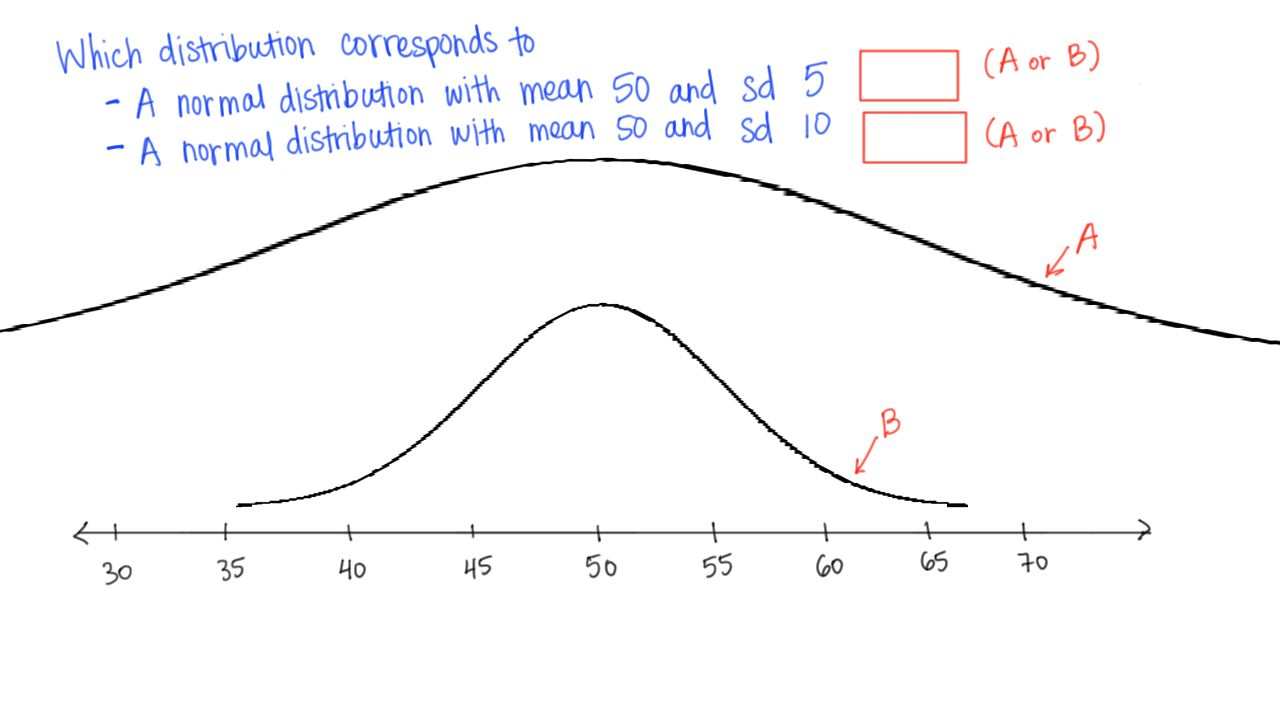 Which distribution corresponds to
- A normal distribution with mean 50 and sd 5 (A or B)
- A normal distribution with mean 50 and sd 10 (A or B)
A
B
30 35 40 45 50 55 60 65 70